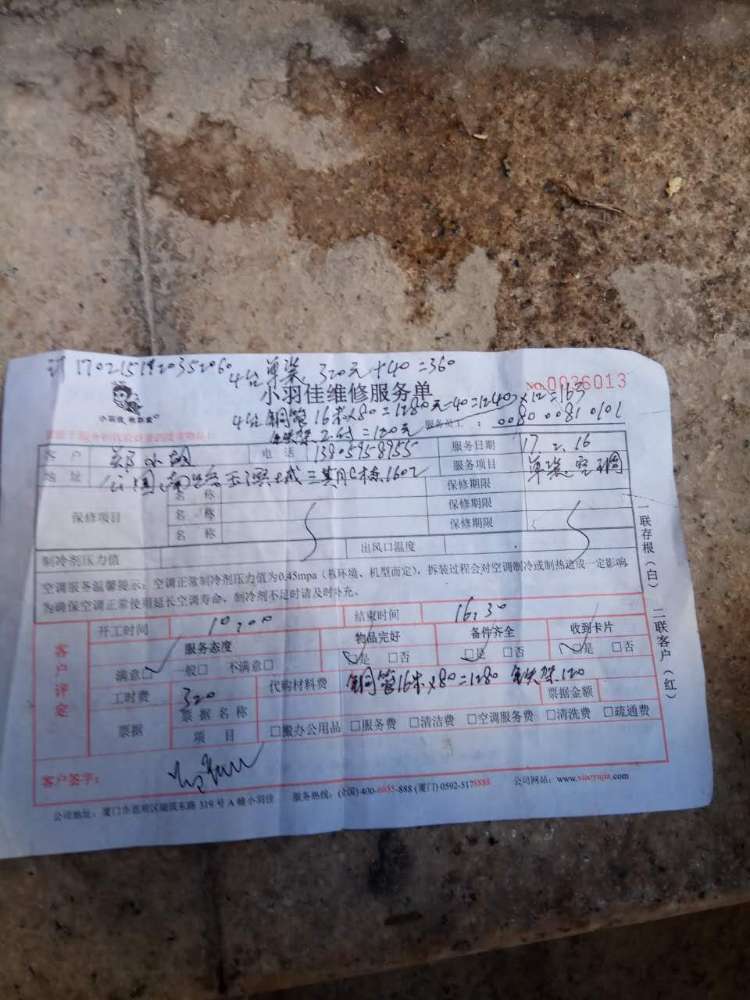 1702151920352060 4台单装 320元+40=360
小羽佳维修服务单
NO.0036013
4台铜管16米×80=1280元-40=1240
铁架 =120元
服务员工: 0080 0081 0101
客户 郑小姐 电话 服务日期 17 2.16
地址 三期C栋1602 服务项目 单装空调
保修项目
名称 保修期限
名称 保修期限
名称 保修期限
制冷剂压力值 出风口温度
空调服务温馨提示:空调正常制冷剂压力值为0.45mpa(按环境、机型而定),拆装过程会对空调制冷或制热造成一定影响
为确保空调正常使用延长空调寿命,制冷剂不足时请及时补充。
一联存根(白) 二联客户(红)
客户评定
开工时间 10:00 结束时间 16:30
服务态度 物品完好 备件齐全 收到卡片
满意□ 一般□ 不满意□ □是 □否 □是 □否 □是 □否
工时费 320 代购材料费 铜管16米×80=1280 铁架120 票据金额
票据 票据名称
项目 □搬办公用品 □服务费 □清洁费 □空调服务费 □清洗费 □疏通费
客户签字:
公司地址:厦门市思明区湖滨东路319号A幢小羽佳 服务热线:(全国)400-6655-888 (厦门)0592-5178888 公司网站:www.xiaoyujia.com